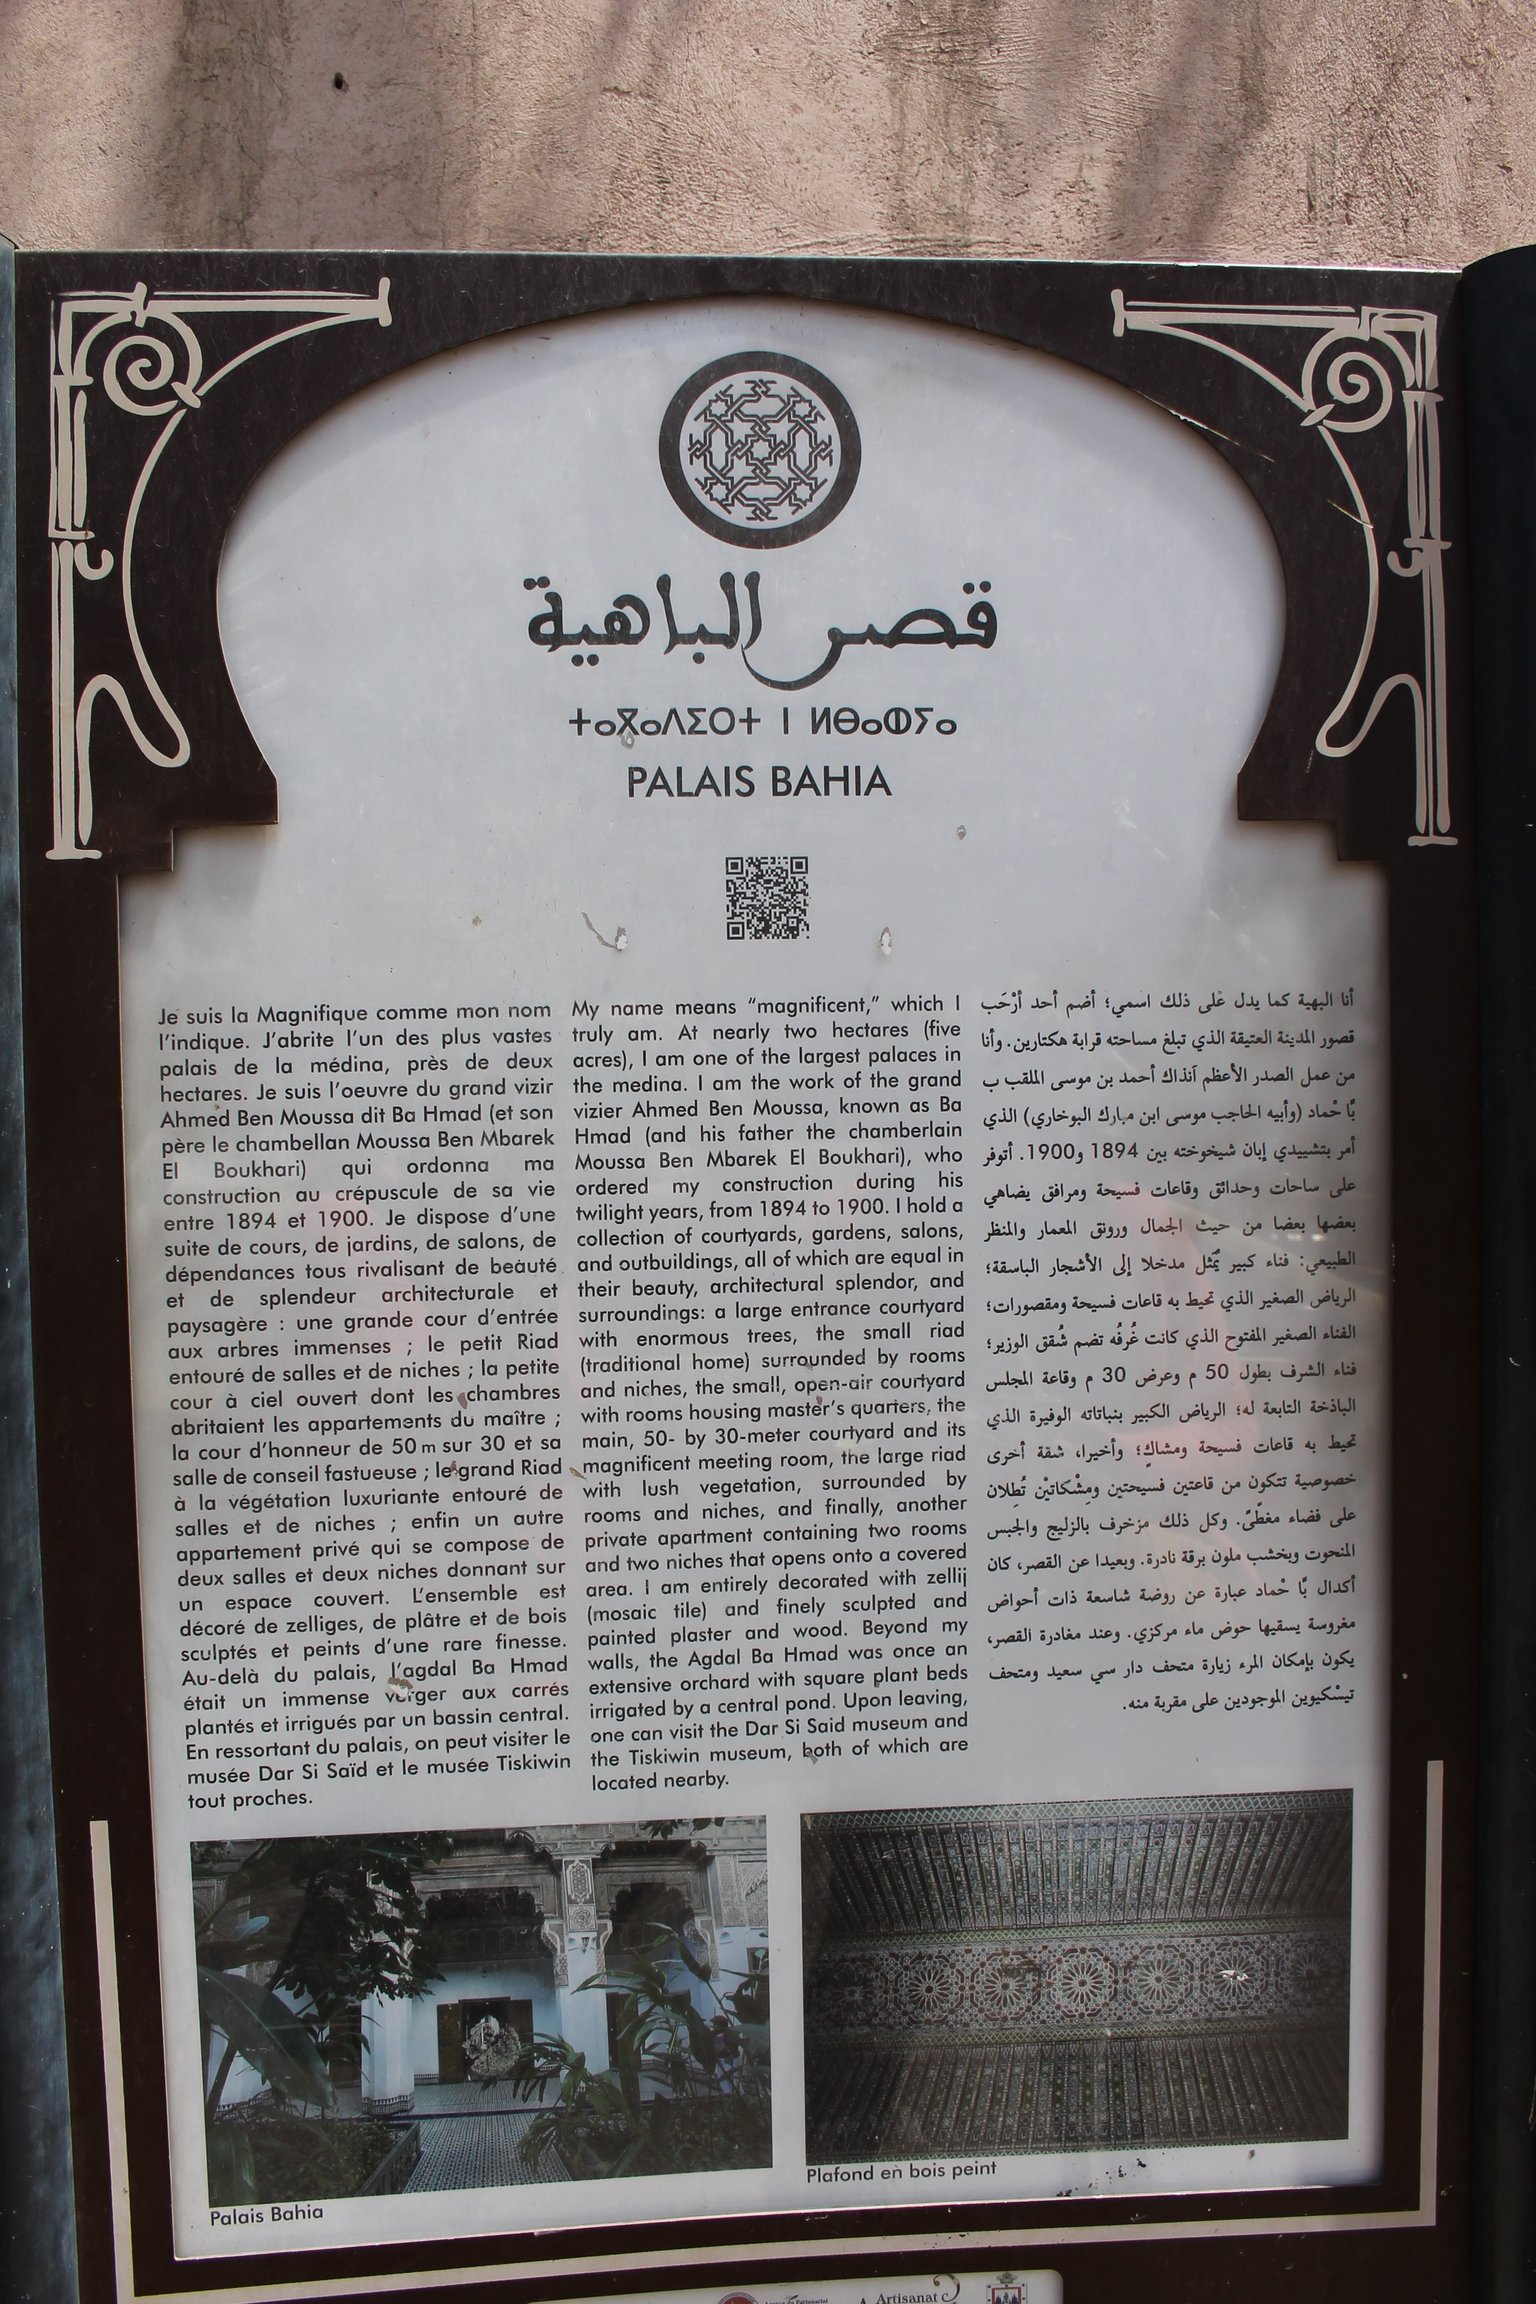 قصر الباهية
ⵜⴰⴳⴰⴷⵉⵔⵜ ⵏ ⵍⴱⴰⵀⵢⴰ
PALAIS BAHIA
Je suis la Magnifique comme mon nom
l'indique. J'abrite l'un des plus vastes
palais de la médina, près de deux
hectares. Je suis l'oeuvre du grand vizir
Ahmed Ben Moussa dit Ba Hmad (et son
père le chambellan Moussa Ben Mbarek
El Boukhari) qui ordonna ma
construction au crépuscule de sa vie
entre 1894 et 1900. Je dispose d'une
suite de cours, de jardins, de salons, de
dépendances tous rivalisant de beauté
et de splendeur architecturale et
paysagère : une grande cour d'entrée
aux arbres immenses ; le petit Riad
entouré de salles et de niches ; la petite
cour à ciel ouvert dont les chambres
abritaient les appartements du maître ;
la cour d'honneur de 50 m sur 30 et sa
salle de conseil fastueuse ; le grand Riad
à la végétation luxuriante entouré de
salles et de niches ; enfin un autre
appartement privé qui se compose de
deux salles et deux niches donnant sur
un espace couvert. L'ensemble est
décoré de zelliges, de plâtre et de bois
sculptés et peints d'une rare finesse.
Au-delà du palais, l'agdal Ba Hmad
était un immense verger aux carrés
plantés et irrigués par un bassin central.
En ressortant du palais, on peut visiter le
musée Dar Si Saïd et le musée Tiskiwin
tout proches.
My name means “magnificent,” which I
truly am. At nearly two hectares (five
acres), I am one of the largest palaces in
the medina. I am the work of the grand
vizier Ahmed Ben Moussa, known as Ba
Hmad (and his father the chamberlain
Moussa Ben Mbarek El Boukhari), who
ordered my construction during his
twilight years, from 1894 to 1900. I hold a
collection of courtyards, gardens, salons,
and outbuildings, all of which are equal in
their beauty, architectural splendor, and
surroundings: a large entrance courtyard
with enormous trees, the small riad
(traditional home) surrounded by rooms
and niches, the small, open-air courtyard
with rooms housing master's quarters, the
main, 50- by 30-meter courtyard and its
magnificent meeting room, the large riad
with lush vegetation, surrounded by
rooms and niches, and finally, another
private apartment containing two rooms
and two niches that opens onto a covered
area. I am entirely decorated with zellij
(mosaic tile) and finely sculpted and
painted plaster and wood. Beyond my
walls, the Agdal Ba Hmad was once an
extensive orchard with square plant beds
irrigated by a central pond. Upon leaving,
one can visit the Dar Si Said museum and
the Tiskiwin museum, both of which are
located nearby.
أنا البهية كما يدل على ذلك اسمي؛ أضم أحد أرْحَب
قصور المدينة العتيقة الذي تبلغ مساحته قرابة هكتارين. وأنا
من عمل الصدر الأعظم آنذاك أحمد بن موسى الملقب ب
بَّا حْماد (وأبيه الحاجب موسى ابن مبارك البوخاري) الذي
أمر بتشييدي إبان شيخوخته بين 1894 و1900. أتوفر
على ساحات وحدائق وقاعات فسيحة ومرافق يضاهي
بعضها بعضا من حيث الجمال ورونق المعمار والمنظر
الطبيعي: فناء كبير يُمَثل مدخلا إلى الأشجار الباسقة؛
الرياض الصغير الذي تحيط به قاعات فسيحة ومقصورات؛
الفناء الصغير المفتوح الذي كانت غُرفُه تضم شُقق الوزير؛
فناء الشرف بطول 50 م وعرض 30 م وقاعة المجلس
الباذخة التابعة له؛ الرياض الكبير بنباتاته الوفيرة الذي
تحيط به قاعات فسيحة ومشاكٍ؛ وأخيرا، شقة أخرى
خصوصية تتكون من قاعتين فسيحتين ومِشْكَاتيْن تُطِلان
على فضاء مغطّىً. وكل ذلك مزخرف بالزليج والجبس
المنحوت وبخشب ملون برقة نادرة. وبعيدا عن القصر، كان
أكدال بَّا حْماد عبارة عن روضة شاسعة ذات أحواض
مغروسة يسقيها حوض ماء مركزي. وعند مغادرة القصر،
يكون بإمكان المرء زيارة متحف دار سي سعيد ومتحف
تيسْكيوين الموجودين على مقربة منه.
Palais Bahia
Plafond en bois peint
Artisanat